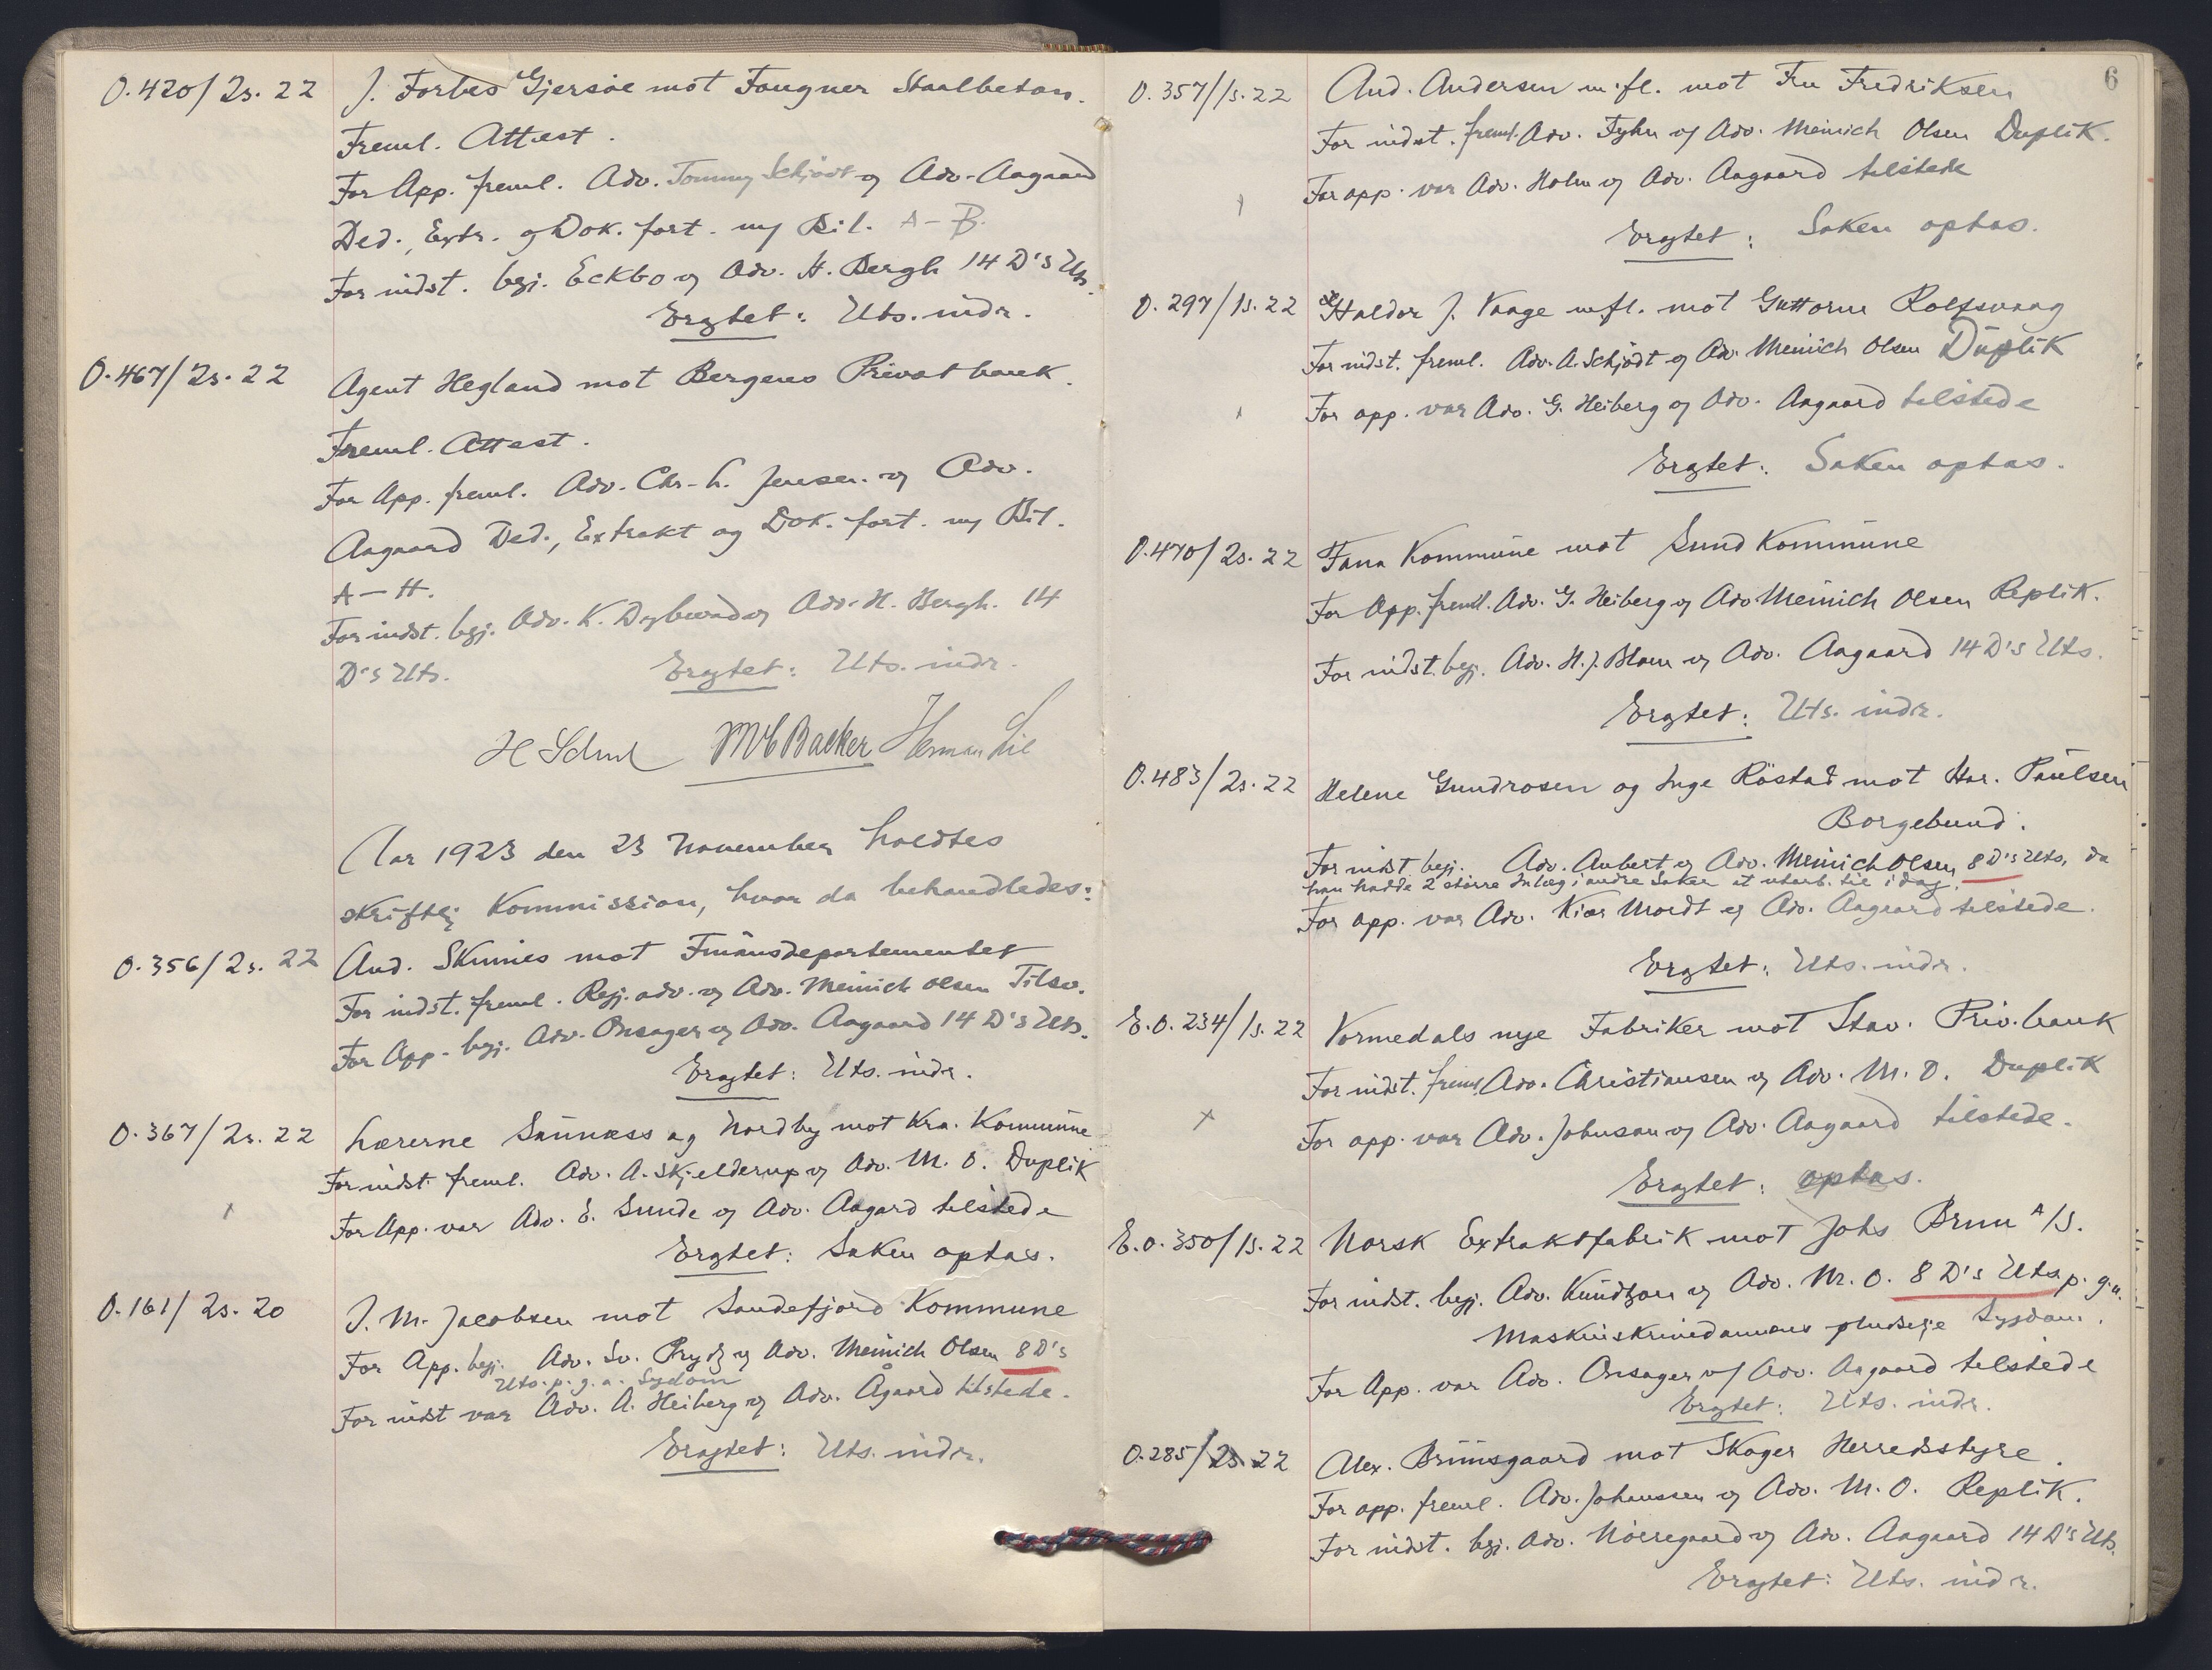 O. 420/2s. 22 J. Forbes Gjersøe mot Fougner Staalbeton.
Freml. Attest.
For App. freml. Adv. Tommy Schjødt og Adv. Aagaard
Ded., Extr. og Dok. fort. m/ Bil. A-B.
For indst. begj. Eckbo og Adv. H. Bergh 14 D's Uts.
Eragtet: Uts. indr.
O. 467/2s. 22 Agent Hegland mot Bergens Privatbank.
Freml. Attest.
For App. freml. Adv. Chr. L. Jensen og Adv.
Aagaard Ded., Extrakt og Dok. fort. m/ Bil.
A-H.
For indst. begj. Adv. K. Dybwad og Adv. H. Bergh. 14
D's Uts. Eragtet: Uts. indr.
H Scheel M C Backer Herman Lie
Aar 1923 den 23 November holdtes
skriftlig Kommission, hvor da behandledes:
O. 356/2s. 22 And. Skunies mot Finansdepartementet
For indst. freml. Regj. adv. og Adv. Meinich Olsen Tilsv.
For App. begj. Adv. Onsager og Adv. Aagaard 14 D's Uts.
Eragtet: Uts. indr.
O. 367/2s. 22 Lærerne Sannæss og Nordby mot Kra. Kommune
For indst. freml. Adv. A. Skjelderup og Adv. M. O. Duplik
For App. var Adv. E. Sunde og Adv. Aagard tilstede
Eragtet: Saken optas.
O. 161/2s. 20 J. M. Jacobsen mot Sandefjord Kommune
For App. begj. Adv. Sv. Prydz og Adv. Meinich Olsen 8 D's
Uts. p. g. a. Sygdom
For indst var Adv. A. Heiberg og Adv. Ågaard tilstede.
Eragtet: Uts. indr.
6
O. 357/1s. 22 And. Andersen m. fl. mot Fru Fredriksen
For indst. freml. Adv. Fyhn og Adv. Meinich Olsen Duplik.
For app. var Adv. Holm og Adv. Aagaard tilstede
Eragtet: Saken optas.
O. 297/1s. 22 Haldor J. Vaage mfl. mot Guttorm Rolfsvaag
For indst. freml. Adv. A. Schjødt og Adv. Meinich Olsen Duplik
For app. var Adv. G. Heiberg og Adv. Aagaard tilstede
Eragtet: Saken optas.
O. 470/2s. 22 Fana Kommune mot Sund Kommune
For App. freml. Adv. G. Heiberg og Adv Meinich Olsen Replik.
For indst. begj. Adv. H. J. Blom og Adv. Aagaard 14 D's Uts.
Eragtet: Uts. indr.
O. 483/2s. 22 Helene Gundrosen og Inge Røstad mot Har. Paulsen
Borgebund.
For indst. begj. Adv. Aubert og Adv. Meinich Olsen 8 D's Uts, da
han hadde 2 større Inlæg i andre Saker at utarb. til i dag.
For app. var Adv. Kiær Mordt og Adv. Aagaard tilstede.
Eragtet: Uts. indr.
E.O. 234/1s. 22 Vormedals nye Fabriker mot Stav. Priv. bank
For indst. freml. Adv. Christiansen og Adv. M. O. Duplik
For app. var Adv. Johnson og Adv. Aagaard tilstede.
Eragtet: optas.
E.O. 350/1s. 22 Norsk Extraktfabrik mot Johs Brun A/S.
For indst. begj. Adv. Kundtzon og Adv. M. O. 8 D's Uts p. g. a.
Maskinskrivedamens pludselige Sygdom.
For App. var Adv. Onsager og Adv. Aagaard tilstede
Eragtet: Uts. indr.
O. 285/2s. 22 Alex. Brünsgaard mot Skoger Herredsstyre.
For app. freml. Adv. Johanssen og Adv. M. O. Replik.
For indst. begj. Adv. Nørregaard og Adv. Aagaard 14 D's Uts.
Eragtet: Uts. indr.